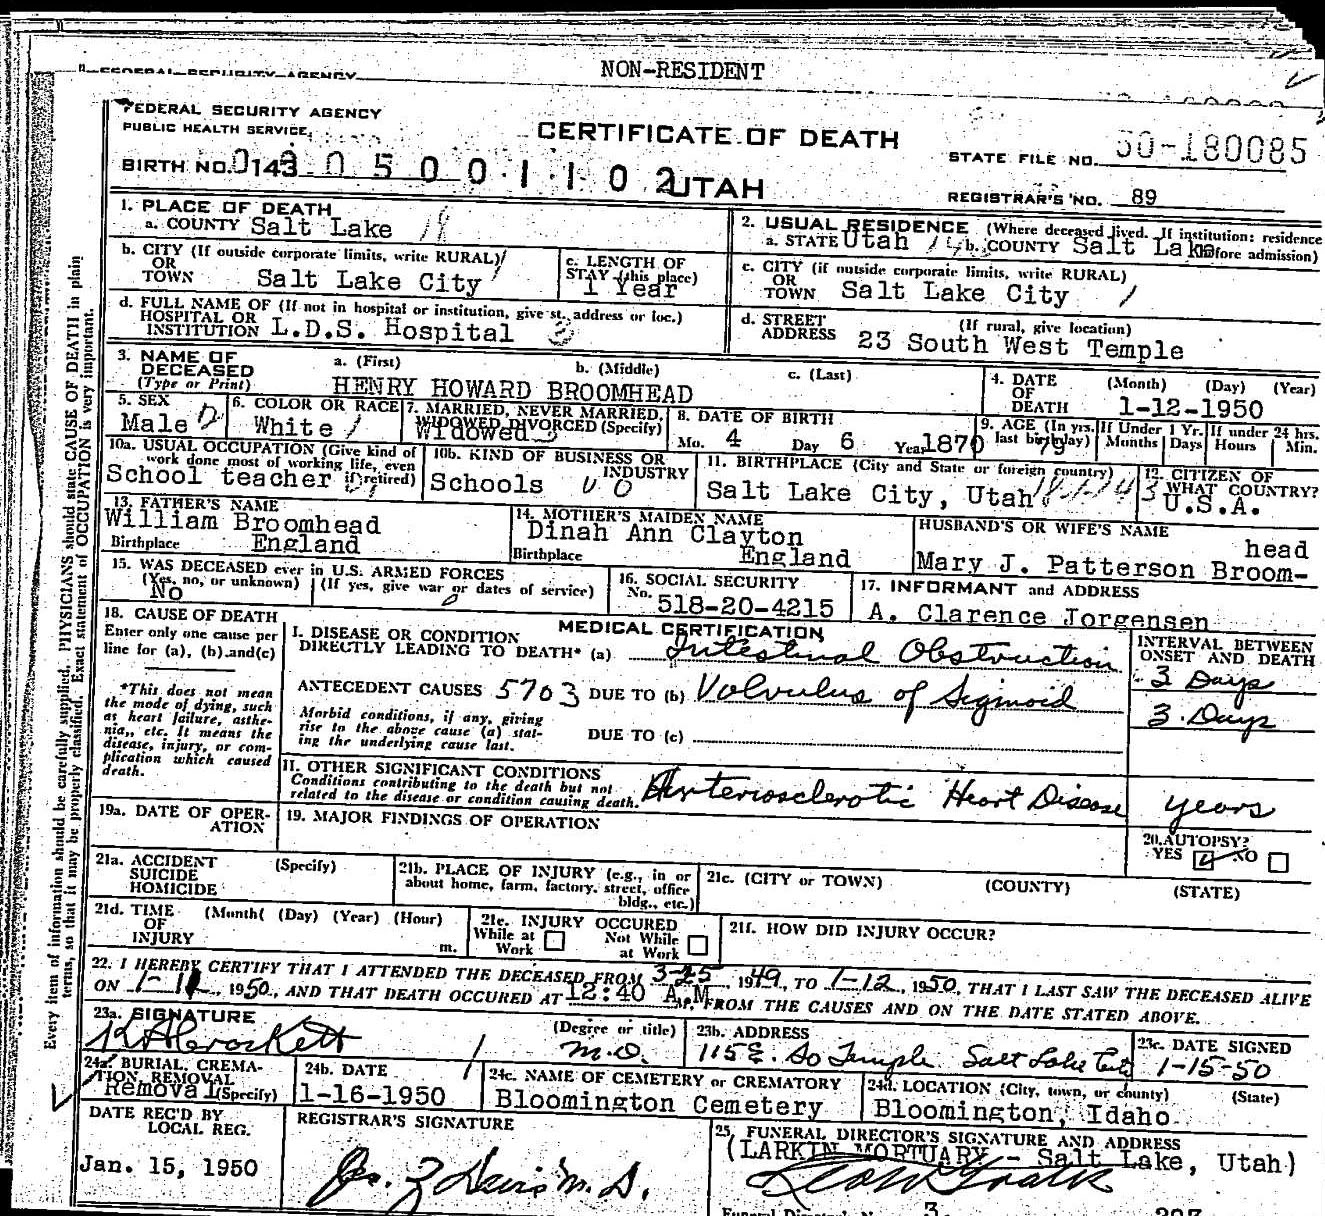 NON-RESIDENT
FEDERAL SECURITY AGENCY
FEDERAL SECURITY AGENCY
PUBLIC HEALTH SERVICE
CERTIFICATE OF DEATH
STATE FILE NO. 50-180085
BIRTH NO. 0143 0 5 0 0 1 1 0 2 UTAH
REGISTRAR'S NO. 89
1. PLACE OF DEATH
a. COUNTY Salt Lake 18
2. USUAL RESIDENCE (Where deceased lived. If institution: residence before admission)
a. STATE Utah b. COUNTY Salt Lake
b. CITY (If outside corporate limits, write RURAL)
OR
TOWN Salt Lake City
c. LENGTH OF STAY (this place)
1 Year
c. CITY (if outside corporate limits, write RURAL)
OR
TOWN Salt Lake City 1
d. FULL NAME OF (If not in hospital or institution, give st. address or loc.)
HOSPITAL OR
INSTITUTION L.D.S. Hospital 3
d. STREET ADDRESS (If rural, give location)
23 South West Temple
3. NAME OF DECEASED (Type or Print)
a. (First) b. (Middle) c. (Last)
HENRY HOWARD BROOMHEAD
4. DATE OF DEATH (Month) (Day) (Year)
1-12-1950
5. SEX
Male
6. COLOR OR RACE
White 1
7. MARRIED, NEVER MARRIED, WIDOWED, DIVORCED (Specify)
Widowed 3
8. DATE OF BIRTH
Mo. 4 Day 6 Year 1870
9. AGE (In yrs. last birthday) 79
If Under 1 Yr. Months Days
If under 24 hrs. Hours Min.
10a. USUAL OCCUPATION (Give kind of work done most of working life, even if retired)
School teacher
10b. KIND OF BUSINESS OR INDUSTRY
Schools
11. BIRTHPLACE (City and State or foreign country)
Salt Lake City, Utah
12. CITIZEN OF WHAT COUNTRY?
U.S.A.
13. FATHER'S NAME
William Broomhead
Birthplace England
14. MOTHER'S MAIDEN NAME
Dinah Ann Clayton
Birthplace England
HUSBAND'S OR WIFE'S NAME
head
Mary J. Patterson Broom-
15. WAS DECEASED ever in U.S. ARMED FORCES
(Yes, no, or unknown) (If yes, give war or dates of service)
No
16. SOCIAL SECURITY
No. 518-20-4215
17. INFORMANT and ADDRESS
A. Clarence Jorgensen
18. CAUSE OF DEATH
Enter only one cause per line for (a), (b) and (c)
*This does not mean the mode of dying, such as heart failure, asthenia, etc. It means the disease, injury, or complication which caused death.
MEDICAL CERTIFICATION
I. DISEASE OR CONDITION
DIRECTLY LEADING TO DEATH* (a) Intestinal Obstruction
INTERVAL BETWEEN ONSET AND DEATH
3 Days
ANTECEDENT CAUSES 5703 DUE TO (b) Volvulus of Sigmoid
3 Days
Morbid conditions, if any, giving rise to the above cause (a) stating the underlying cause last.
DUE TO (c)
II. OTHER SIGNIFICANT CONDITIONS
Conditions contributing to the death but not related to the disease or condition causing death.
Arteriosclerotic Heart Disease
years
19a. DATE OF OPERATION
19. MAJOR FINDINGS OF OPERATION
20. AUTOPSY?
YES NO
21a. ACCIDENT (Specify)
SUICIDE
HOMICIDE
21b. PLACE OF INJURY (e.g., in or about home, farm, factory, street, office bldg., etc.)
21c. (CITY or TOWN) (COUNTY) (STATE)
21d. TIME OF INJURY (Month) (Day) (Year) (Hour) m.
21e. INJURY OCCURED
While at Work Not While at Work
21f. HOW DID INJURY OCCUR?
22. I HEREBY CERTIFY THAT I ATTENDED THE DECEASED FROM 3-25, 1949, TO 1-12, 1950, THAT I LAST SAW THE DECEASED ALIVE
ON 1-11, 1950, AND THAT DEATH OCCURED AT 12:40 A.M., FROM THE CAUSES AND ON THE DATE STATED ABOVE.
23a. SIGNATURE (Degree or title)
Crockett M.D.
23b. ADDRESS
115 E. So Temple Salt Lake City
23c. DATE SIGNED
1-15-50
24a. BURIAL, CREMATION, REMOVAL (Specify)
Removal
24b. DATE
1-16-1950
24c. NAME OF CEMETERY or CREMATORY
Bloomington Cemetery
24d. LOCATION (City, town, or county) (State)
Bloomington, Idaho
DATE REC'D BY LOCAL REG.
Jan. 15, 1950
REGISTRAR'S SIGNATURE
25. FUNERAL DIRECTOR'S SIGNATURE AND ADDRESS
(LARKIN MORTUARY - Salt Lake, Utah)
Every item of information should be carefully supplied. PHYSICIANS should state CAUSE OF DEATH in plain
terms, so that it may be properly classified. Exact statement of OCCUPATION is very important.